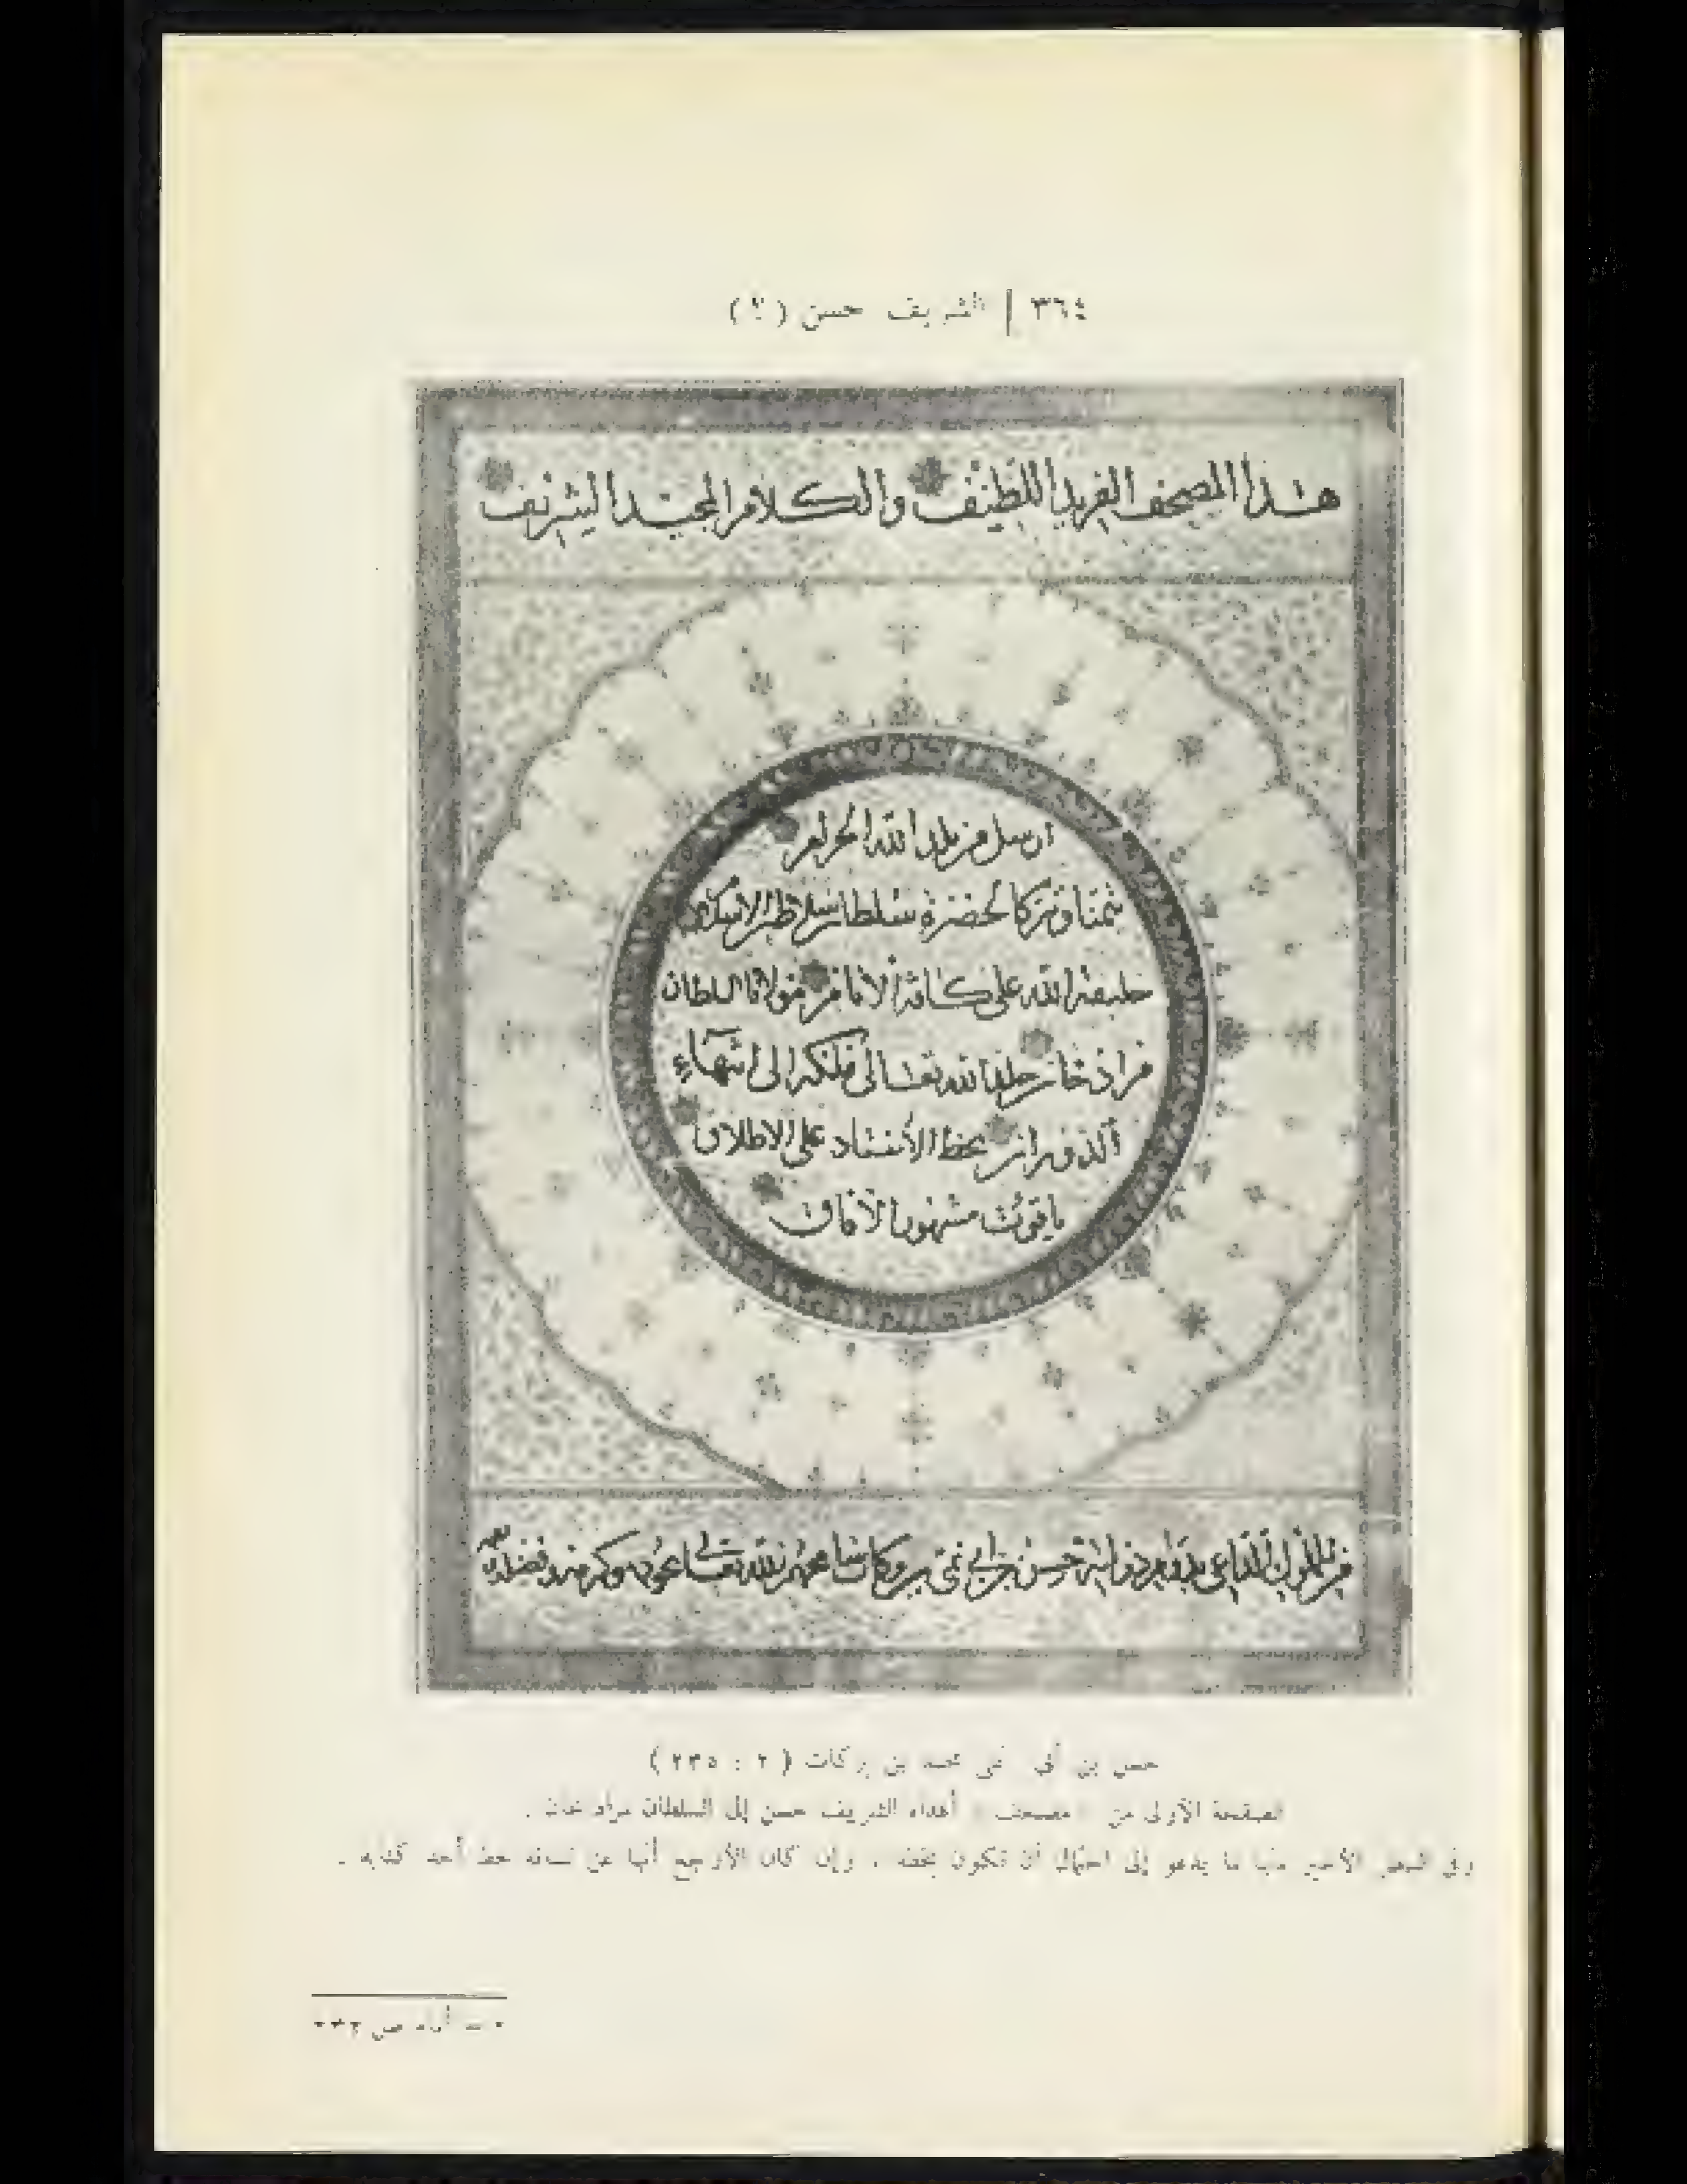 ٣٦٤ | الشريف حسن (٢)
هذا المصحف الفريد اللطيف والكلام المجيد الشريف
ارسل من بلد الله الحرام
تيمنا وتبركا لحضرة سلطان سلاطين الاسلام
خليفة الله على كافة الانام مولانا السلطان
مراد خان خلد الله تعالى ملكه الى انتهاء
الدوران بخط الأستاد على الاطلاق
ياقوت مشهور الآفاق
من المملوك الداعي بدوام حسن بن ابي نمي بن بركات عاملهم الله تعالى بجوده وكرمه وفضله
حسن بن أبي نمي محمد بن بركات (٢ : ٢٣٥)
الصفحة الأولى من « مصحف » أهداه الشريف حسن إلى السلطان مراد خان .
وفي السطر الأخير منها ما يدعو إلى احتمال أن تكون بخطه ، وإن كان الأرجح أنها عن لسانه بخط أحد كتابه .